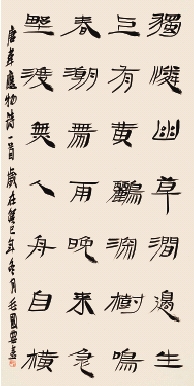 獨憐幽草澗邊生
上有黃鸝深樹鳴
春潮帶雨晚來急
野渡無人舟自橫
唐韋應物詩一首歲在癸巳年冬月毛國典書